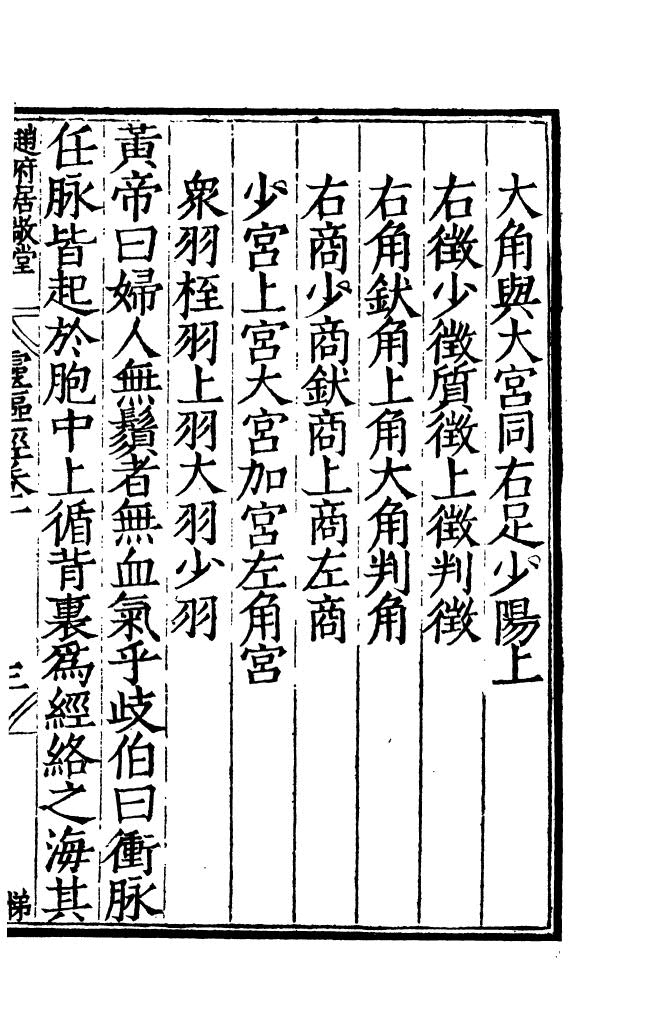 大角與大宮同右足少陽上
右徵少徵質徵上徵判徵
右角釱角上角大角判角
右商少商釱商上商左商
少宮上宮大宮加宮左角宮
衆羽桎羽上羽大羽少羽
黃帝曰婦人無鬚者無血氣乎岐伯曰衝脉
任脉皆起於胞中上循背裏爲經絡之海其
趙府居敬堂 靈樞經卷 三 悌